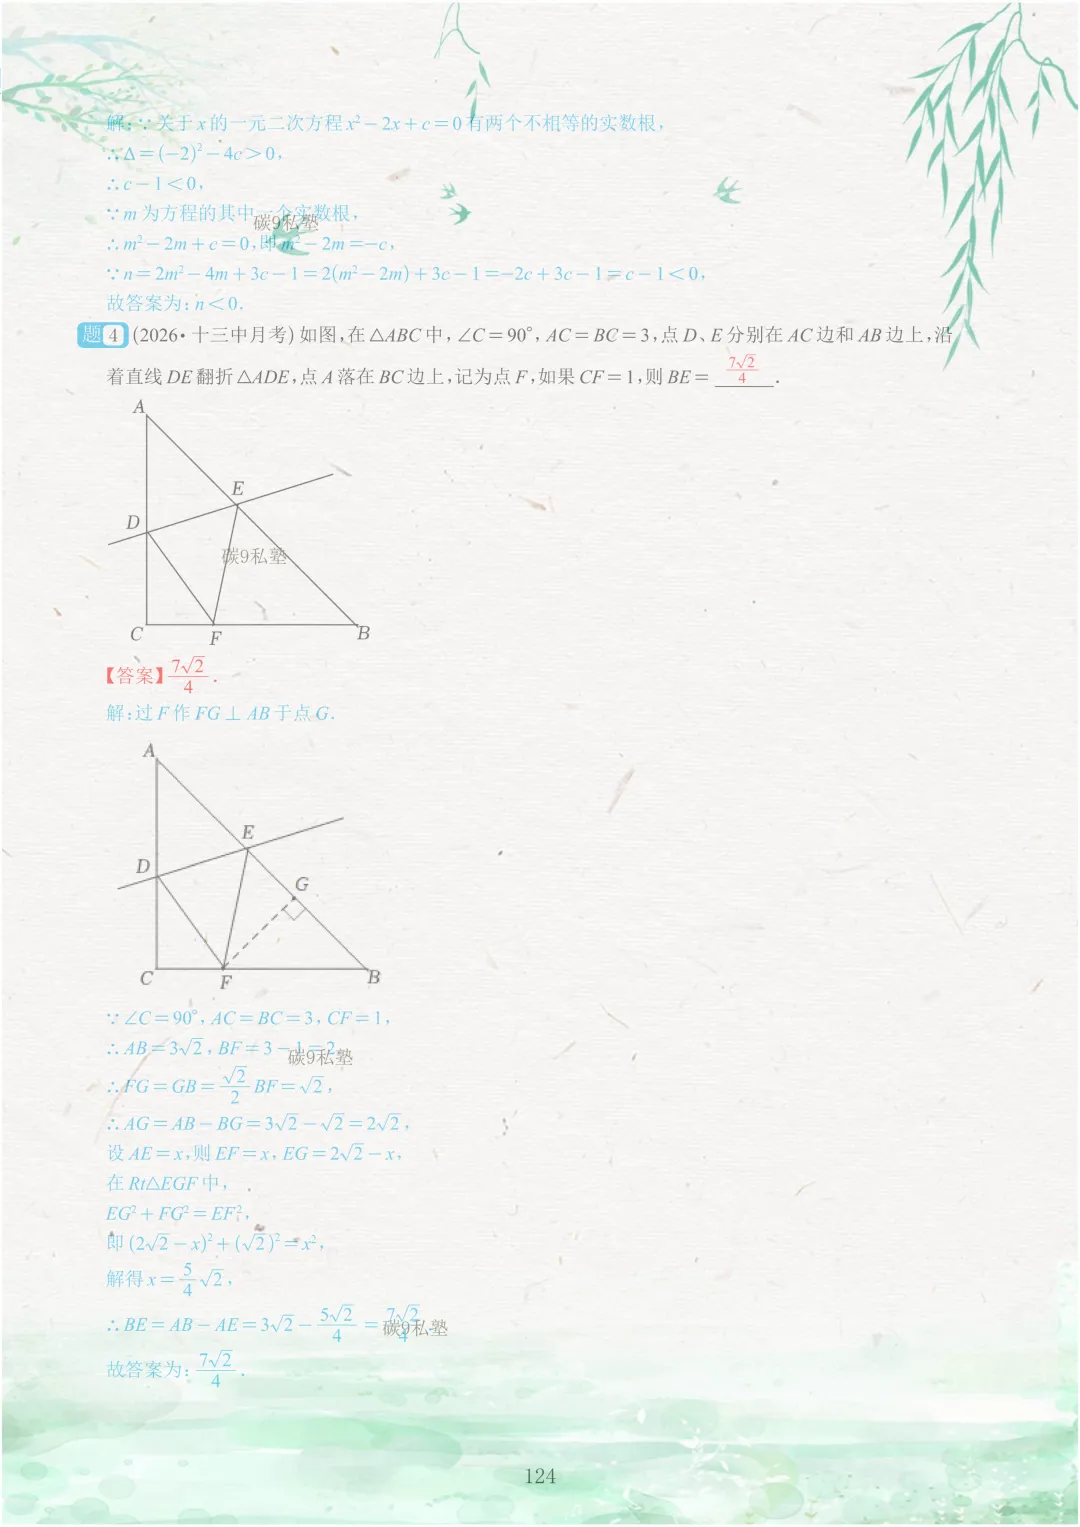 解:∵关于x的一元二次方程x²-2x+c=0有两个不相等的实数根,
∴Δ=(-2)²-4c>0,
∴c-1<0,
∵m为方程的其中一个实数根,
碳9私塾
∴m²-2m+c=0,即m²-2m=-c,
∵n=2m²-4m+3c-1=2(m²-2m)+3c-1=-2c+3c-1=c-1<0,
故答案为:n<0.
题4 (2026·十三中月考)如图,在△ABC中,∠C=90°,AC=BC=3,点D、E分别在AC边和AB边上,沿
着直线DE翻折△ADE,点A落在BC边上,记为点F,如果CF=1,则BE= 7√2/4 .
A
E
D
碳9私塾
C F B
【答案】7√2/4.
解:过F作FG⊥AB于点G.
A
E
D
G
C F B
∵∠C=90°,AC=BC=3,CF=1,
∴AB=3√2,BF=3-1=2,
碳9私塾
∴FG=GB=√2/2 BF=√2,
∴AG=AB-BG=3√2-√2=2√2,
设AE=x,则EF=x,EG=2√2-x,
在Rt△EGF中,
EG²+FG²=EF²,
即(2√2-x)²+(√2)²=x²,
解得x=5/4√2,
∴BE=AB-AE=3√2-5√2/4=7√2/4.
碳9私塾
故答案为:7√2/4.
124